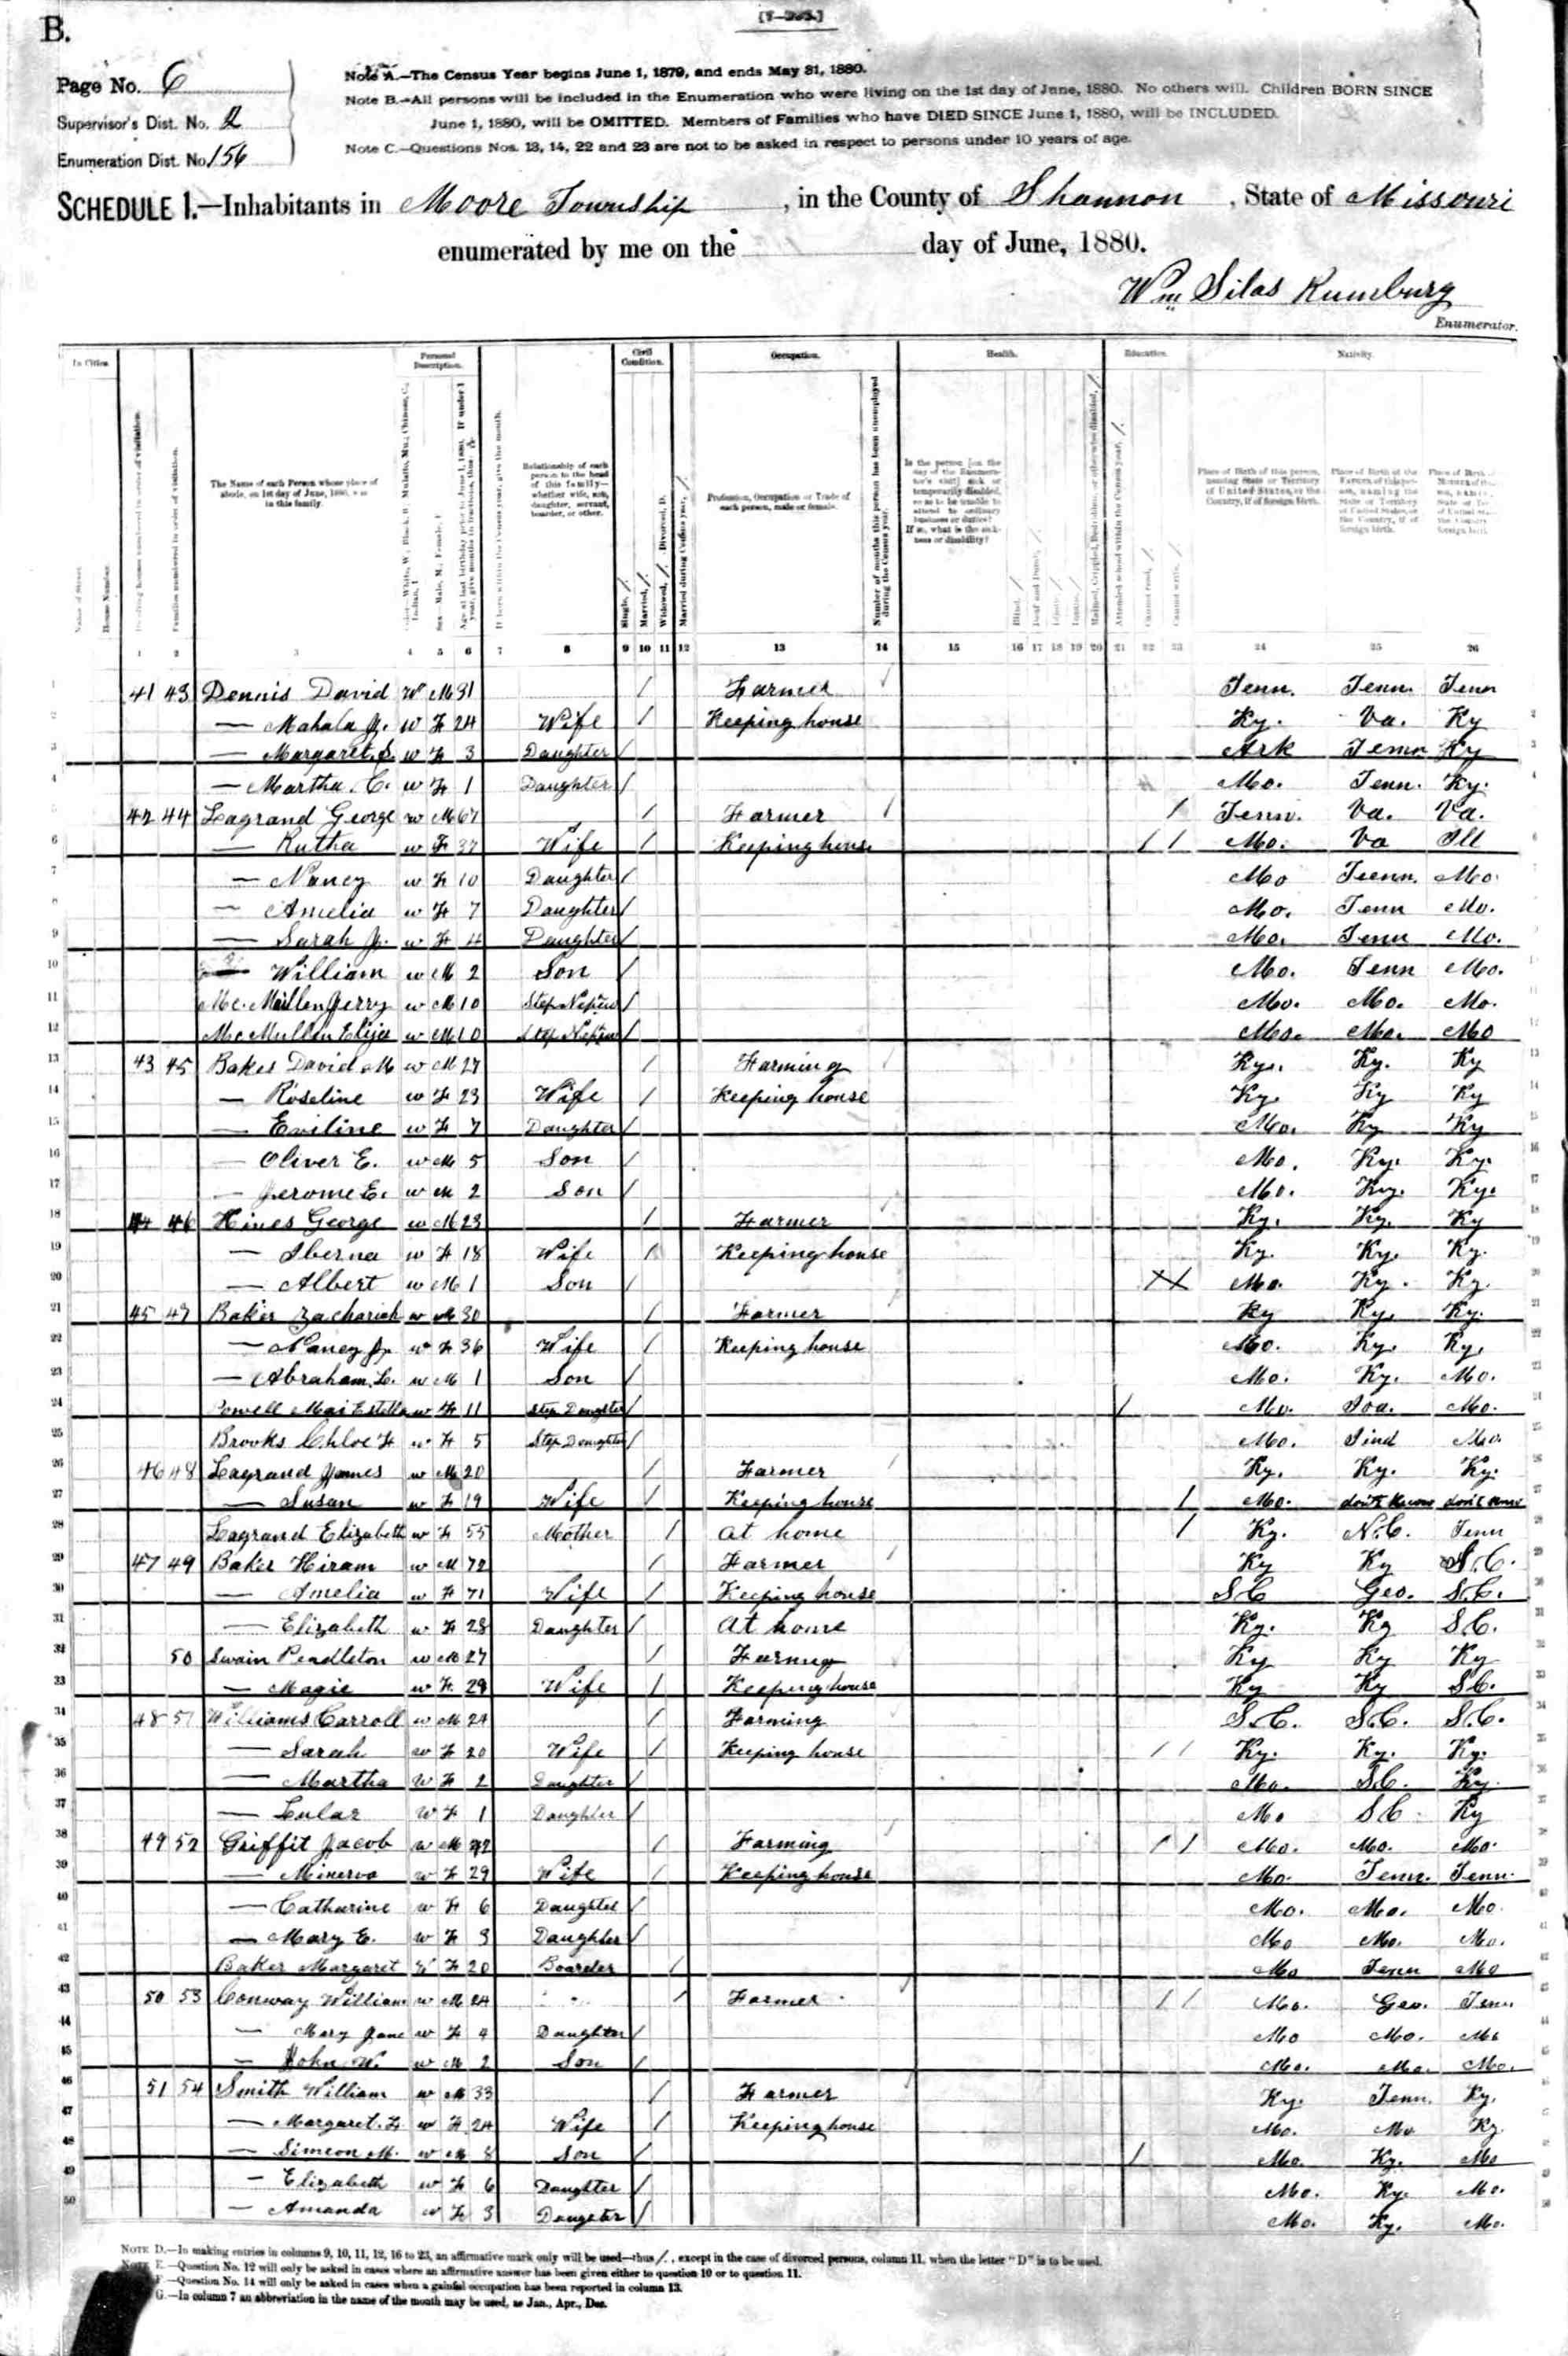 B.
Page No. 6
Supervisor's Dist. No. 2
Enumeration Dist. No. 156
Note A.—The Census Year begins June 1, 1879, and ends May 31, 1880.
Note B.—All persons will be included in the Enumeration who were living on the 1st day of June, 1880. No others will. Children BORN SINCE
June 1, 1880, will be OMITTED. Members of Families who have DIED SINCE June 1, 1880, will be INCLUDED.
Note C.—Questions Nos. 13, 14, 22 and 23 are not to be asked in respect to persons under 10 years of age.
SCHEDULE 1.—Inhabitants in Moore Township, in the County of Shannon, State of Missouri
enumerated by me on the day of June, 1880.
Wm Silas Rumburg
Enumerator.
In Cities. Personal Description. Civil Condition. Occupation. Health. Education. Nativity.
The Name of each Person whose place of abode, on 1st day of June, 1880, was in this family.
Relationship of each person to the head of this family—whether wife, son, daughter, servant, boarder, or other.
Profession, Occupation or Trade of each person, male or female.
Number of months this person has been unemployed during the Census year.
Place of Birth of this person, naming State or Territory of United States, or the Country, if of foreign birth.
1 2 3 4 5 6 7 8 9 10 11 12 13 14 15 16 17 18 19 20 21 22 23 24 25 26
1 41 43 Dennis David W M 31 / Farmer Tenn. Tenn. Tenn
2 — Mahala J. W F 24 Wife / Keeping house Ky. Va. Ky
3 — Margaret S. W F 3 Daughter / Ark Tenn Ky
4 — Martha C. W F 1 Daughter / Mo. Tenn. Ky.
5 42 44 Lagrand George W M 67 / Farmer / / Tenn. Va. Va.
6 — Rutha W F 37 Wife / Keeping house / / Mo. Va Ill
7 — Nancy W F 10 Daughter / Mo Teenn. Mo.
8 — Amelia W F 7 Daughter / Mo. Tenn Mo.
9 — Sarah J. W F 4 Daughter / Mo. Tenn Mo.
10 — William W M 2 Son / Mo. Tenn Mo.
11 Mc.Mullen Jerry W M 10 Step Nephew / Mo. Mo. Mo.
12 McMullen Elija W M 10 Step Nephew / Mo. Mo. Mo
13 43 45 Baker David M W M 27 / Farming Ky. Ky. Ky
14 — Roseline W F 23 Wife / Keeping house Ky. Ky Ky
15 — Eviline W F 7 Daughter / Mo. Ky Ky
16 — Oliver E. W M 5 Son / Mo. Ky. Ky.
17 — Jerome E. W M 2 Son / Mo. Ky. Ky.
18 44 46 Hines George W M 23 / Farmer Ky. Ky. Ky
19 — Iberna W F 18 Wife / Keeping house Ky. Ky. Ky.
20 — Albert W M 1 Son / Mo. Ky. Ky.
21 45 47 Baker Zachariah W M 30 / Farmer Ky Ky. Ky.
22 — Nancy J. W F 36 Wife / Keeping house Mo. Ky. Ky.
23 — Abraham L. W M 1 Son / Mo. Ky. Mo.
24 Powell Mai Estella W F 11 Step Daughter / / Mo. Ioa. Mo.
25 Brooks Chloe F W F 5 Step Daughter / Mo. Iind Mo.
26 46 48 Lagrand James W M 20 / Farmer Ky. Ky. Ky.
27 — Susan W F 19 Wife / Keeping house / Mo. don't know don't know
28 Lagrand Elizabeth W F 55 Mother / At home / Ky. N.C. Tenn
29 47 49 Baker Hiram W M 72 / Farmer Ky Ky S.C.
30 — Amelia W F 71 Wife / Keeping house S C Geo. S.C.
31 — Elizabeth W F 28 Daughter / At home Ky. Ky S.C.
32 50 Swain Pendleton W M 27 / Ky Ky Ky
33 — Magie W F 29 Wife / Keeping house Ky Ky S.C.
34 48 51 Williams Carroll W M 24 / Farming S.C. S.C. S.C.
35 — Sarah W F 20 Wife / Keeping house / / Ky. Ky. Ky.
36 — Martha W F 2 Daughter / Mo. S.C. Ky.
37 — Lular W F 1 Daughter / Mo S C Ky
38 49 52 Griffit Jacob W M / Farming / / Mo. Mo. Mo.
39 — Minerva W F 29 Wife / Keeping house Mo. Tenn. Tenn.
40 — Catharine W F 6 Daughter / Mo. Mo. Mo.
41 — Mary E. W F 3 Daughter / Mo Mo. Mo.
42 Baker Margaret W F 20 Boarder / Mo Tenn Mo
43 50 53 Conway William W M 24 / Farmer / / Mo. Geo. Tenn
44 — Mary Jane W F 4 Daughter / Mo Mo. Mo
45 — John W. W M 2 Son / Mo. Mo. Mo.
46 51 54 Smith William W M 33 / Farmer Ky. Tenn. Ky.
47 — Margaret. F W F 24 Wife / Keeping house Mo. Mo Ky.
48 — Simeon M. W M 8 Son / / Mo. Ky. Mo
49 — Elizabeth W F 6 Daughter / Mo. Ky. Mo.
50 — Amanda W F 3 Daugeter / Mo. Ky. Mo.
NOTE D.—In making entries in columns 9, 10, 11, 12, 16 to 23, an affirmative mark only will be used—thus /, except in the case of divorced persons, column 11, when the letter "D" is to be used.
NOTE E.—Question No. 12 will only be asked in cases where an affirmative answer has been given either to question 10 or to question 11.
F.—Question No. 14 will only be asked in cases when a gainful occupation has been reported in column 13.
G.—In column 7 an abbreviation in the name of the month may be used, as Jan., Apr., Dec.